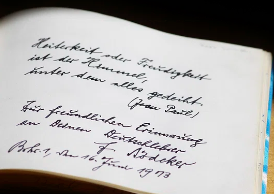 Heiterkeit oder Freudigkeit
ist der Himmel,
unter dem alles gedeiht.
(Jean Paul)
Zur freundlichen Erinnerung
an Deinen
F. Rödeker
den 16. Juni 1973